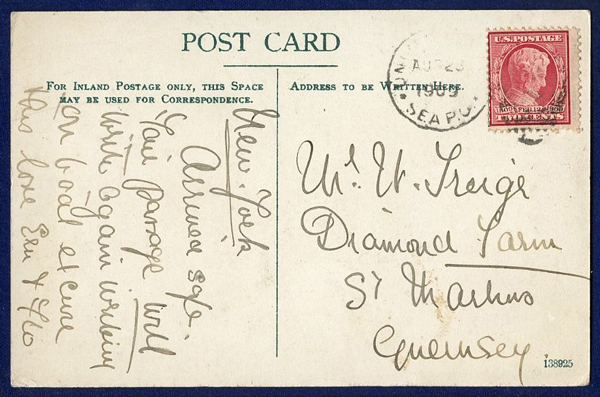 POST CARD
FOR INLAND POSTAGE ONLY, THIS SPACE
MAY BE USED FOR CORRESPONDENCE.
ADDRESS TO BE WRITTEN HERE.
New York
Arrived safe.
Fair passage Will
write again writing
on boat excuse
this love Em & Flo
AUG 23
1909
SEA PO
U.S. POSTAGE
TWO CENTS
Mr W.
Diamond Farm
St Martins
Guernsey
138925